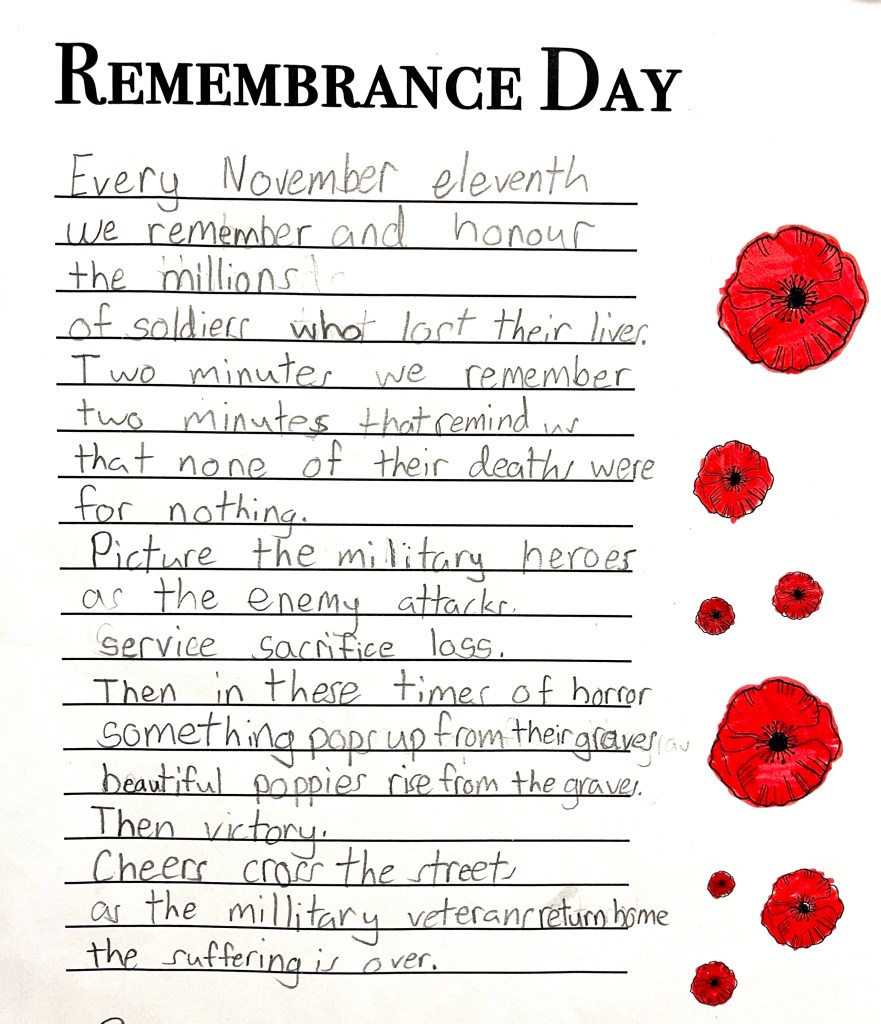 REMEMBRANCE DAY
Every November eleventh
we remember and honour
the millions
of soldiers who lost their lives.
Two minutes we remember
two minutes that remind us
that none of their deaths were
for nothing.
Picture the military heroes
as the enemy attacks.
service sacrifice loss.
Then in these times of horror
something pops up from their graves
beautiful poppies rise from the graves.
Then victory.
Cheers cross the streets
as the millitary veterans return home
the suffering is over.